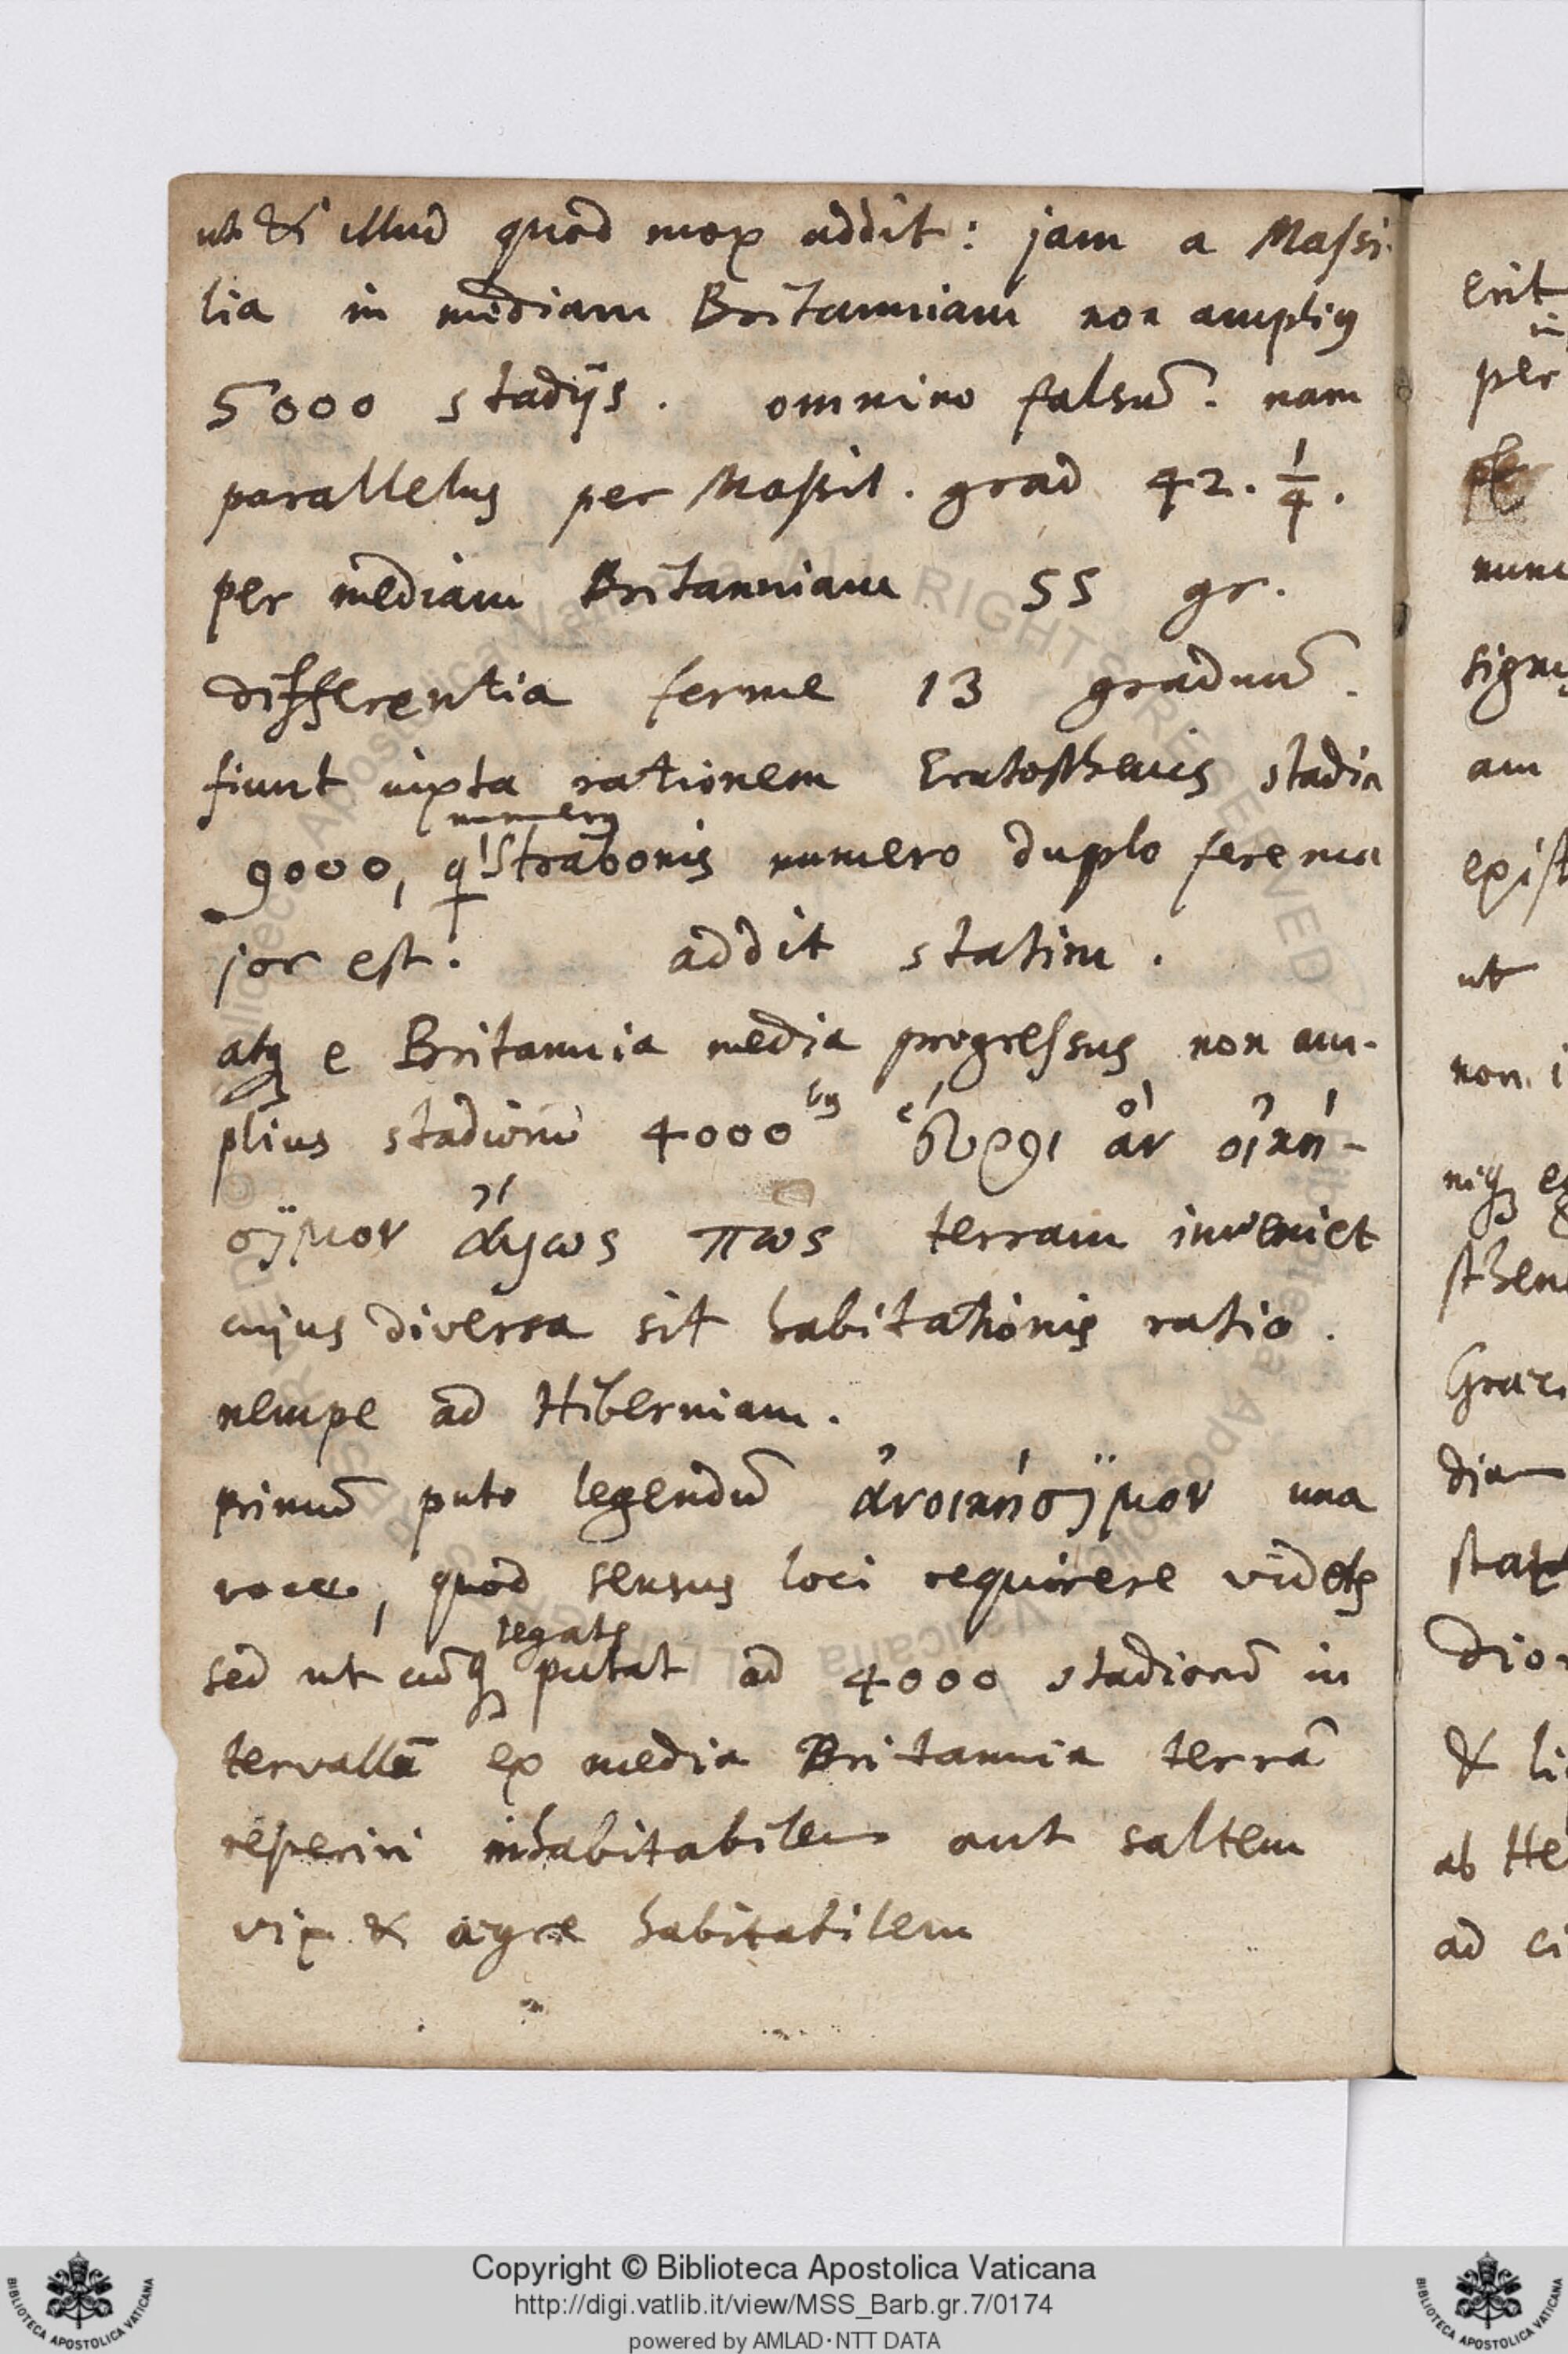 ut & illud quod mox addit: jam a Massi-
lia in mediam Britanniam non ampliꝰ
5000 stadijs. omnino falsũ. nam
parallelus per Massil. grad 42. 1/4.
per mediam Britanniam 55 gr.
differentia ferme 13 graduũ.
fiunt iuxta rationem Eratosthenis stadia
numero
9000, q Strabonis numero duplo fere ma
jor est. addit statim.
atq e Britannia media progressus non am-
plius stadiorũ 4000 bꝰ εὕροι ἂν οἰκή-
σϊμον ἄλλως πως terram inveniet
cujus diversa sit habitationis ratio.
nempe ad Hiberniam.
primũ puto legendũ ἀνοικήσϊμον una
voce, quod sensus loci requirere videtr
legatr
sed ut cũq putat ad 4000 stadiorũ in
tervallũ ex media Britannia terrã
reperiri inhabitabilem aut saltem
vix & ægre habitabilem
erit
in
per
signu
am
exist
ut
non i
niq e
sthen
Graec
dia
stat
dio
& li
ab He
ad ci
Copyright © Biblioteca Apostolica Vaticana
http://digi.vatlib.it/view/MSS_Barb.gr.7/0174
powered by AMLAD·NTT DATA
BIBLIOTECA APOSTOLICA VATICANA
BIBLIOTECA APOSTOLICA VATICANA